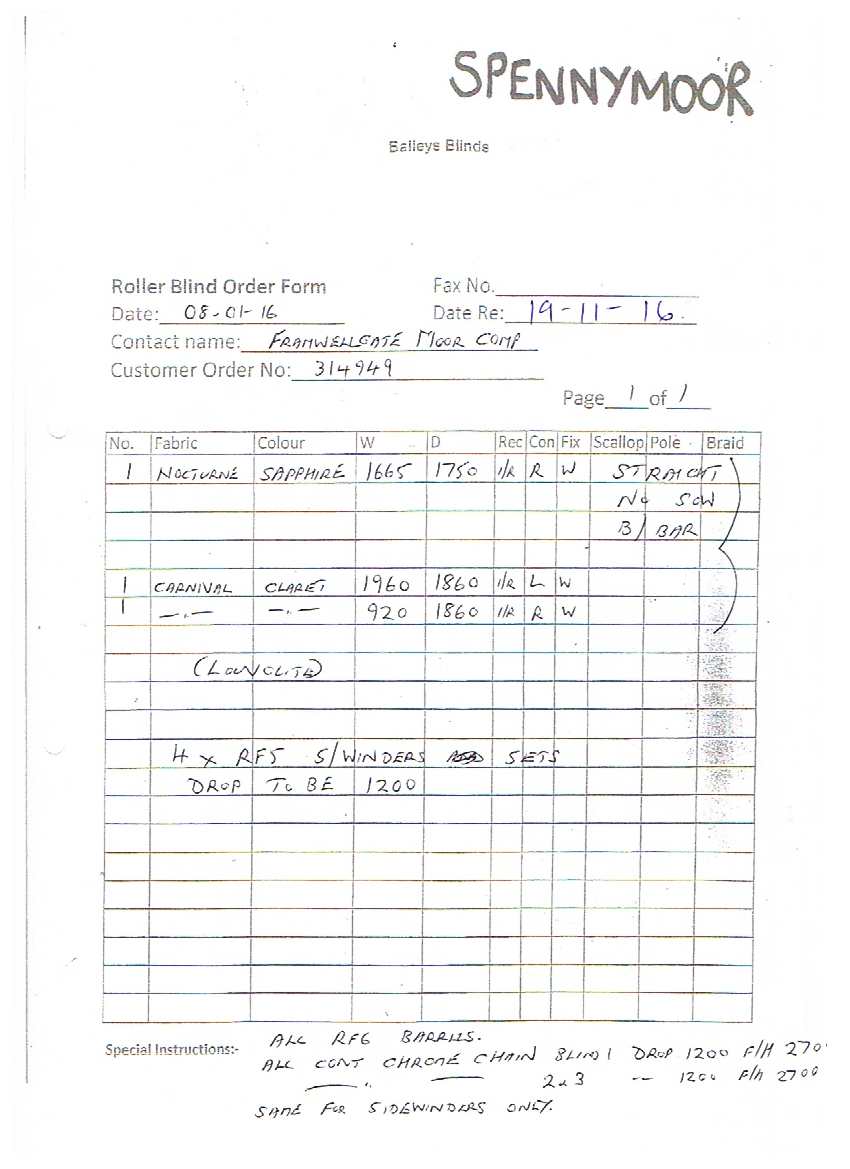 SPENNYMOOR
Baileys Blinds
Roller Blind Order Form Fax No.
Date: 08-01-16 Date Re: 19-11-16.
Contact name: FRAMWELLGATE MOOR COMP
Customer Order No: 314949
Page 1 of 1
No. Fabric Colour W D Rec Con Fix Scallop Pole Braid
1 NOCTURNE SAPPHIRE 1665 1750 I/R R W STRAIGHT
No SEW
B/BAR
1 CARNIVAL CLARET 1960 1860 I/R L W
1 —,,— —,,— 920 1860 I/R R W
(LOUVOLITE)
4 x RF5 S/WINDERS SETS
DROP To BE 1200
Special Instructions:- ALL RF6 BARRELS.
ALL CONT CHROME CHAIN BLIND 1 DROP 1200 F/H 270
—,,— — 2 & 3 — 1200 F/H 2700
SAME FOR SIDEWINDERS ONLY.